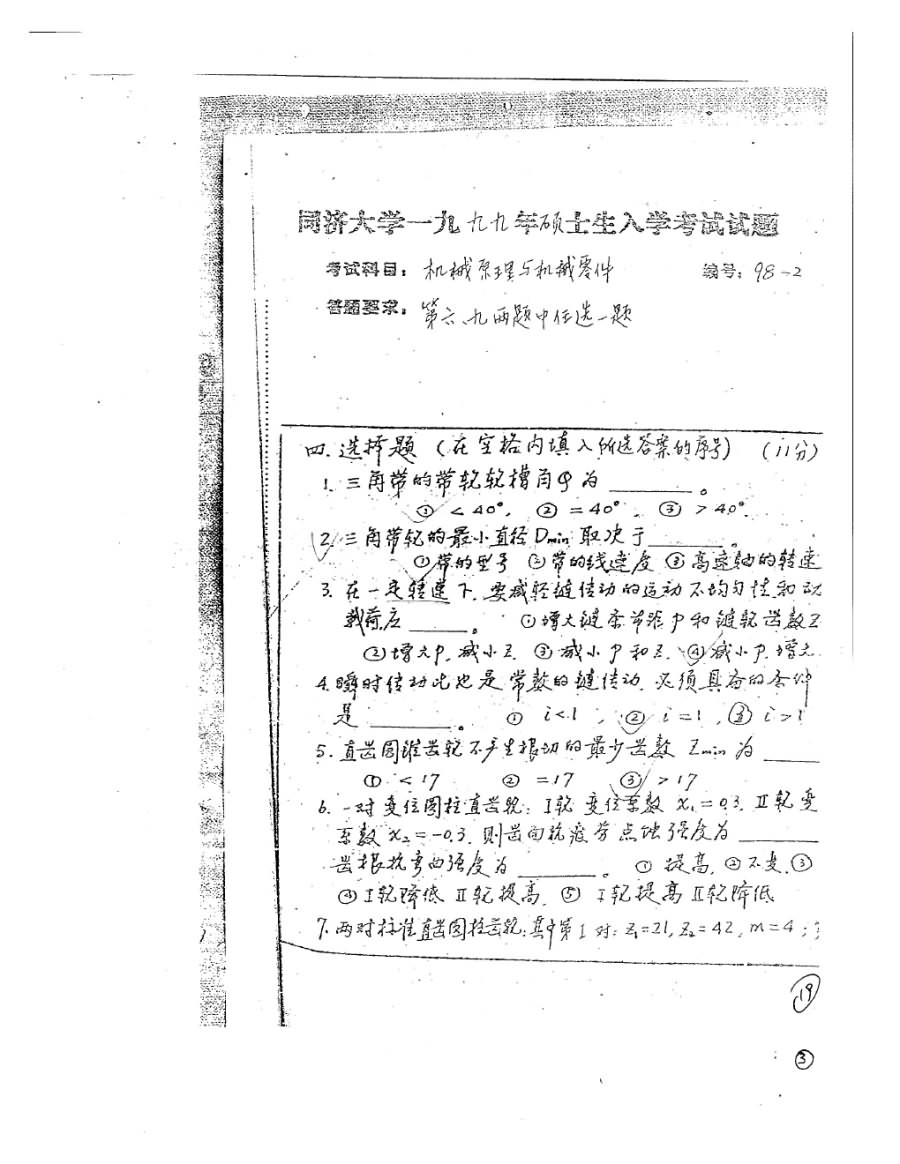 同济大学一九九九年硕士生入学考试试题
考试科目：机械原理与机械零件 编号：98-2
答题要求：第六、九两题中任选一题
四. 选择题（在空格内填入所选答案的序号）（11分）
1. 三角带的带轮轮槽角φ为______。
① < 40°, ② = 40°, ③ > 40°.
2. 三角带轮的最小直径Dmin取决于______。
①带的型号 ②带的线速度 ③高速轴的转速
3. 在一定转速下. 要减轻链传动的运动不均匀性和动
载荷应______。 ①增大链条节距P和链轮齿数Z
②增大P. 减小Z. ③减小P和Z. ④减小P. 增大
4. 瞬时传动比也是常数的链传动. 必须具备的条件
是______。 ① i<1 , ② i=1 , ③ i>1
5. 直齿圆锥齿轮不产生根切的最少齿数 Zmin 为____
① < 17 ② = 17 ③ > 17
6. 一对变位圆柱直齿轮: I轮 变位系数 x₁=0.3. II轮变
系数 x₂=-0.3. 则齿面抗疲劳点蚀强度为______
齿根抗弯曲强度为______。 ① 提高. ②不变. ③
④ I轮降低 II轮提高. ⑤ I轮提高 II轮降低
7. 两对标准直齿圆柱齿轮: 其中第1对: Z₁=21, Z₂=42, m=4 ;
19
③